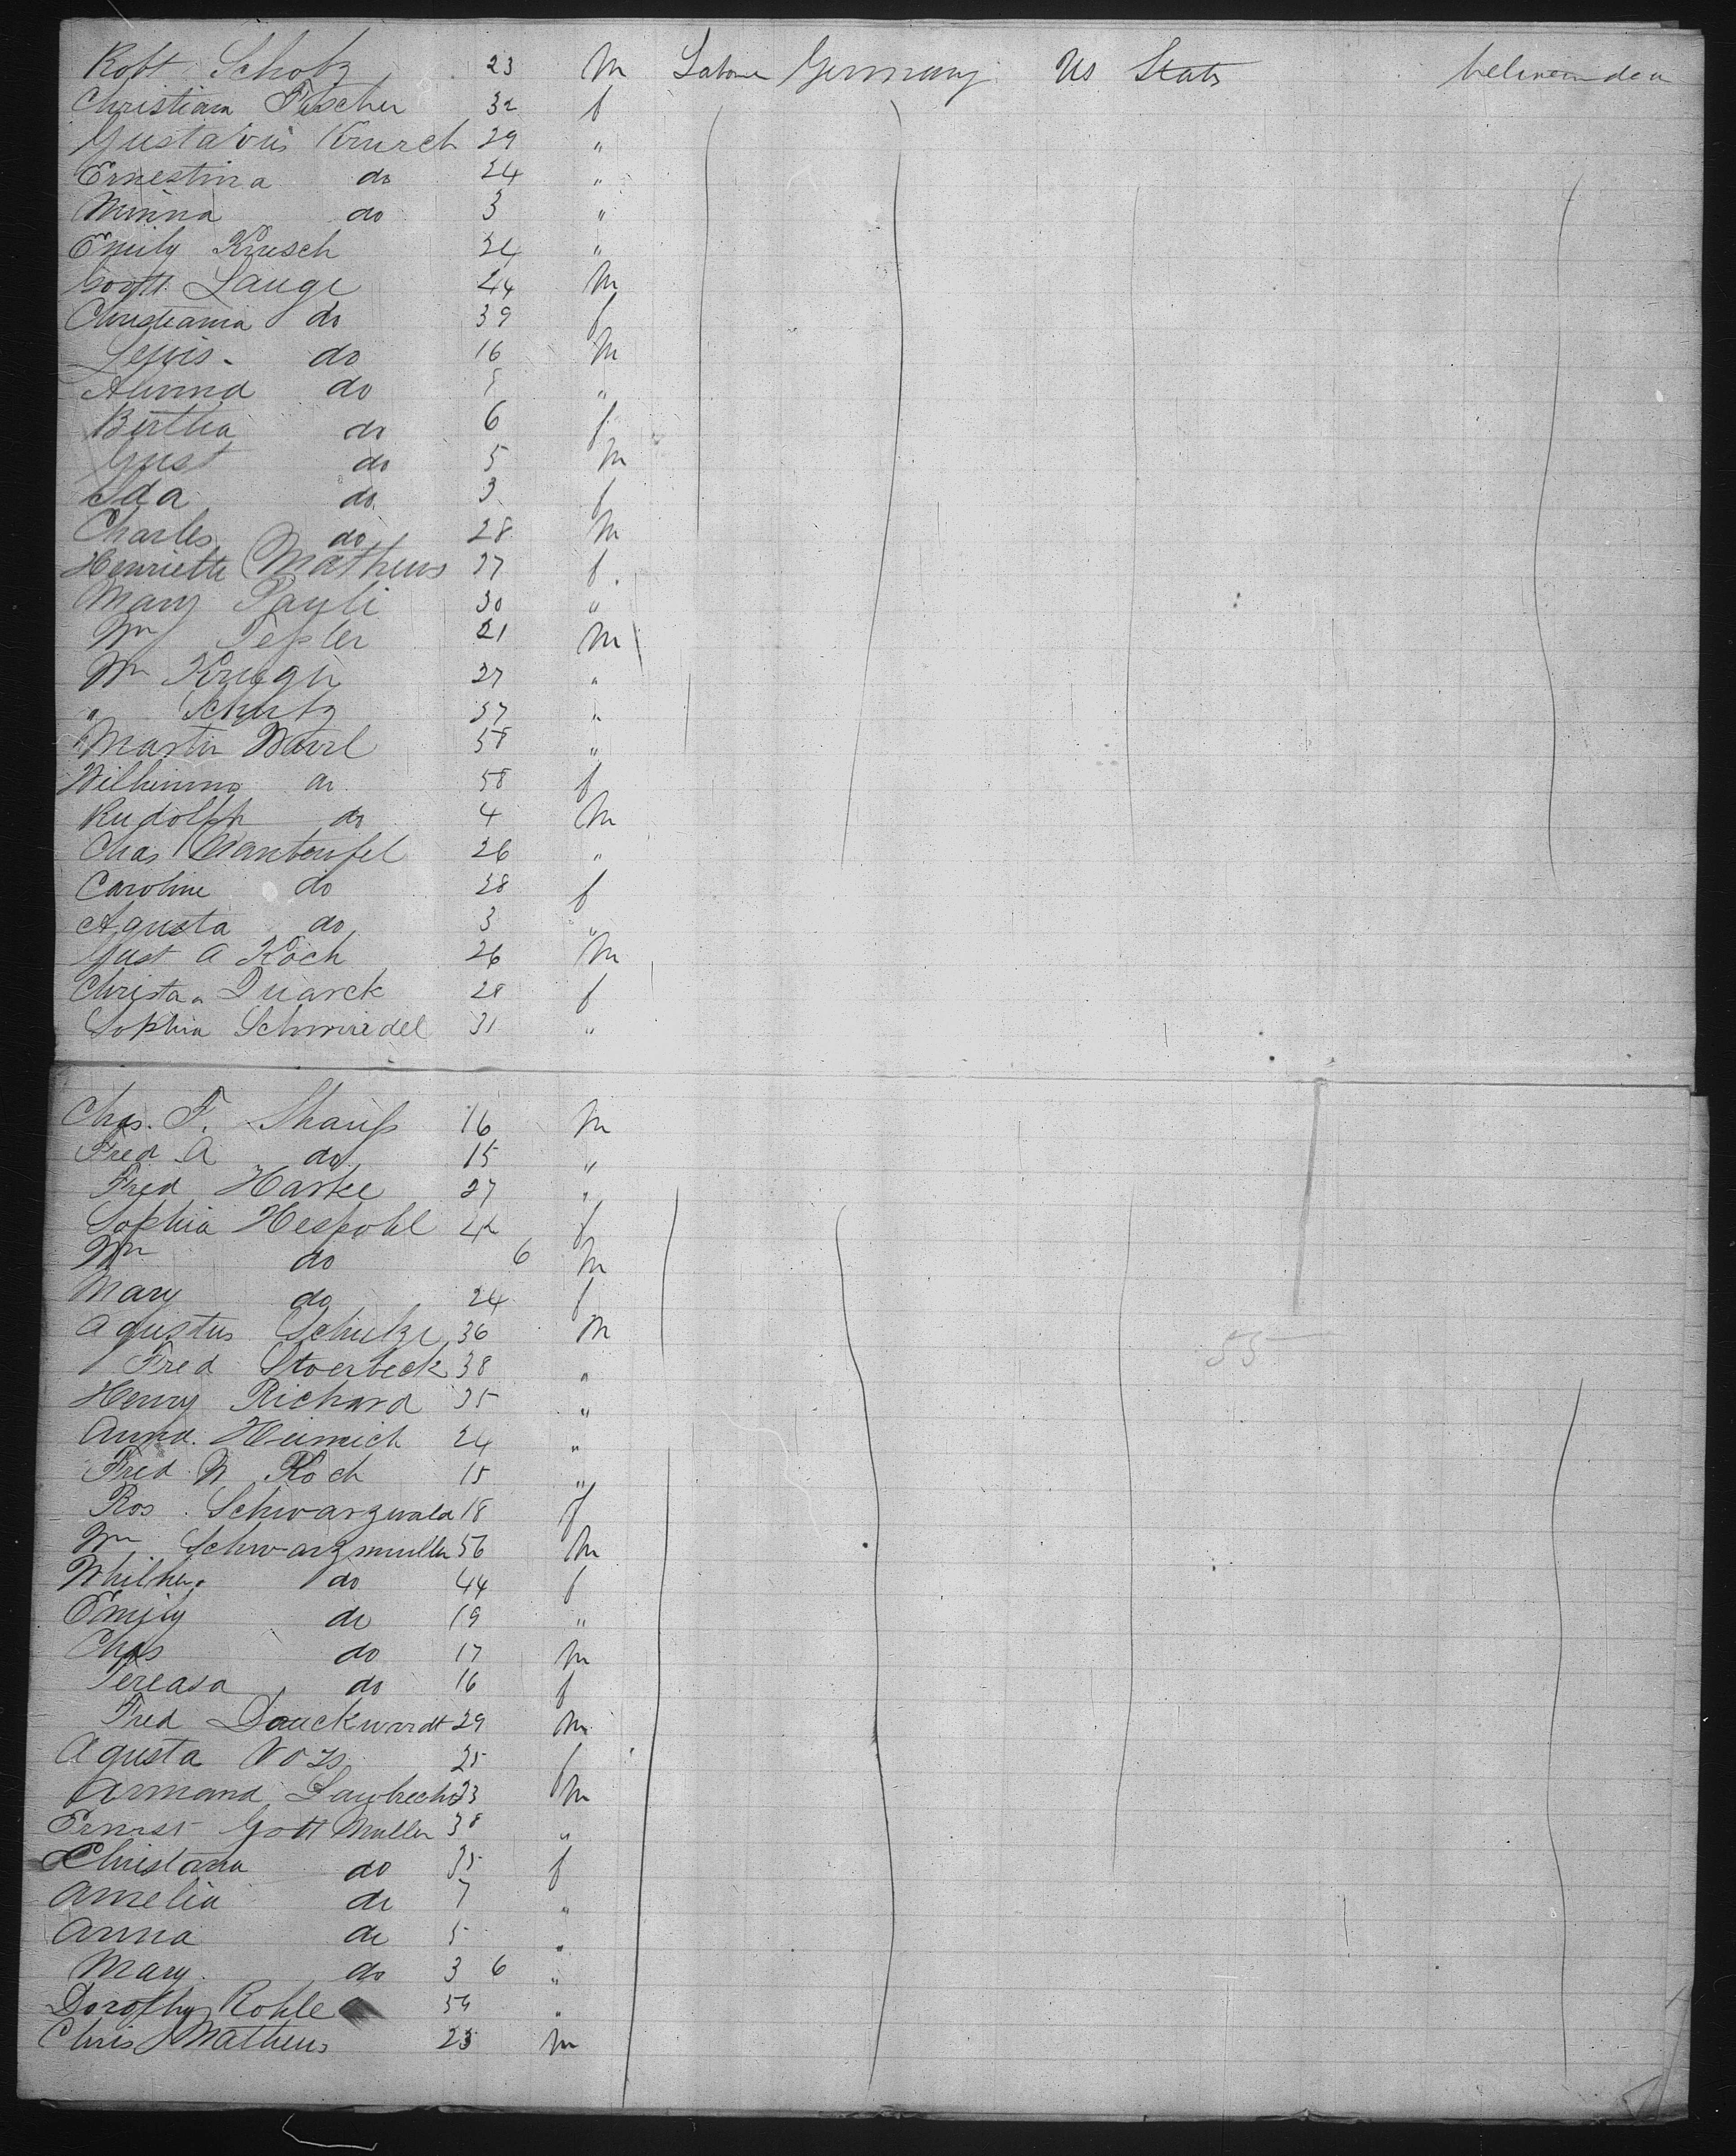 Robt Schotz 23 m Labour Germany US States between deck
Christian Fischer 32 f
Gustavus Krusch 29 "
Ernestina do 24 "
Minna do 3 "
Emily Krusch 24 "
Gottl. Lange 44 m
Christiania do 39 f
Lewis do 16 m
Alwina do "
Bertha do 6 f
Gust do 5 m
Ida do 3 f
Charles do 28 m
Henriette Matheus 27 f
Mary Pauli 30 "
Wm Teßler 21 m
Wm Krueger 27 "
" Schutz 37 "
Martin 58 "
Wilhemina do 58 f
Rudolph do 4 m
Chas Manteufel 26 "
Caroline do 28 f
Agusta do 3 "
Gust A Koch 26 m
Christan Quarck 28 f
Sophia Schmiedel 31 "
Chas. F. Shauß 16 m
Fred A do 15 "
Fred Harke 27 "
Sophia Hespohl 42 f
Wm do 6 m
Mary do 24 f
Agustus Schulze 36 m
Fred Stoerbeck 38 "
55
Henry Richard 35 "
Anna Heinrich 24 "
Fred W Koch 15 "
Ros. Schwarzwald 18 f
Wm Schwarzmuller 56 m
Whilhe. do 44 f
Emily do 19 "
Chas do 17 m
Tereasa do 16 f
Fred Dauckwardt 29 m
Agusta Voss 25 f
Armand 23 m
Ernest Gott Muller 38 "
Christana do 35 f
Amelia do 7 "
Anna do 5 "
Mary do 3 6 "
Dorothy Kohle 54 "
Chris Matheus 25 m